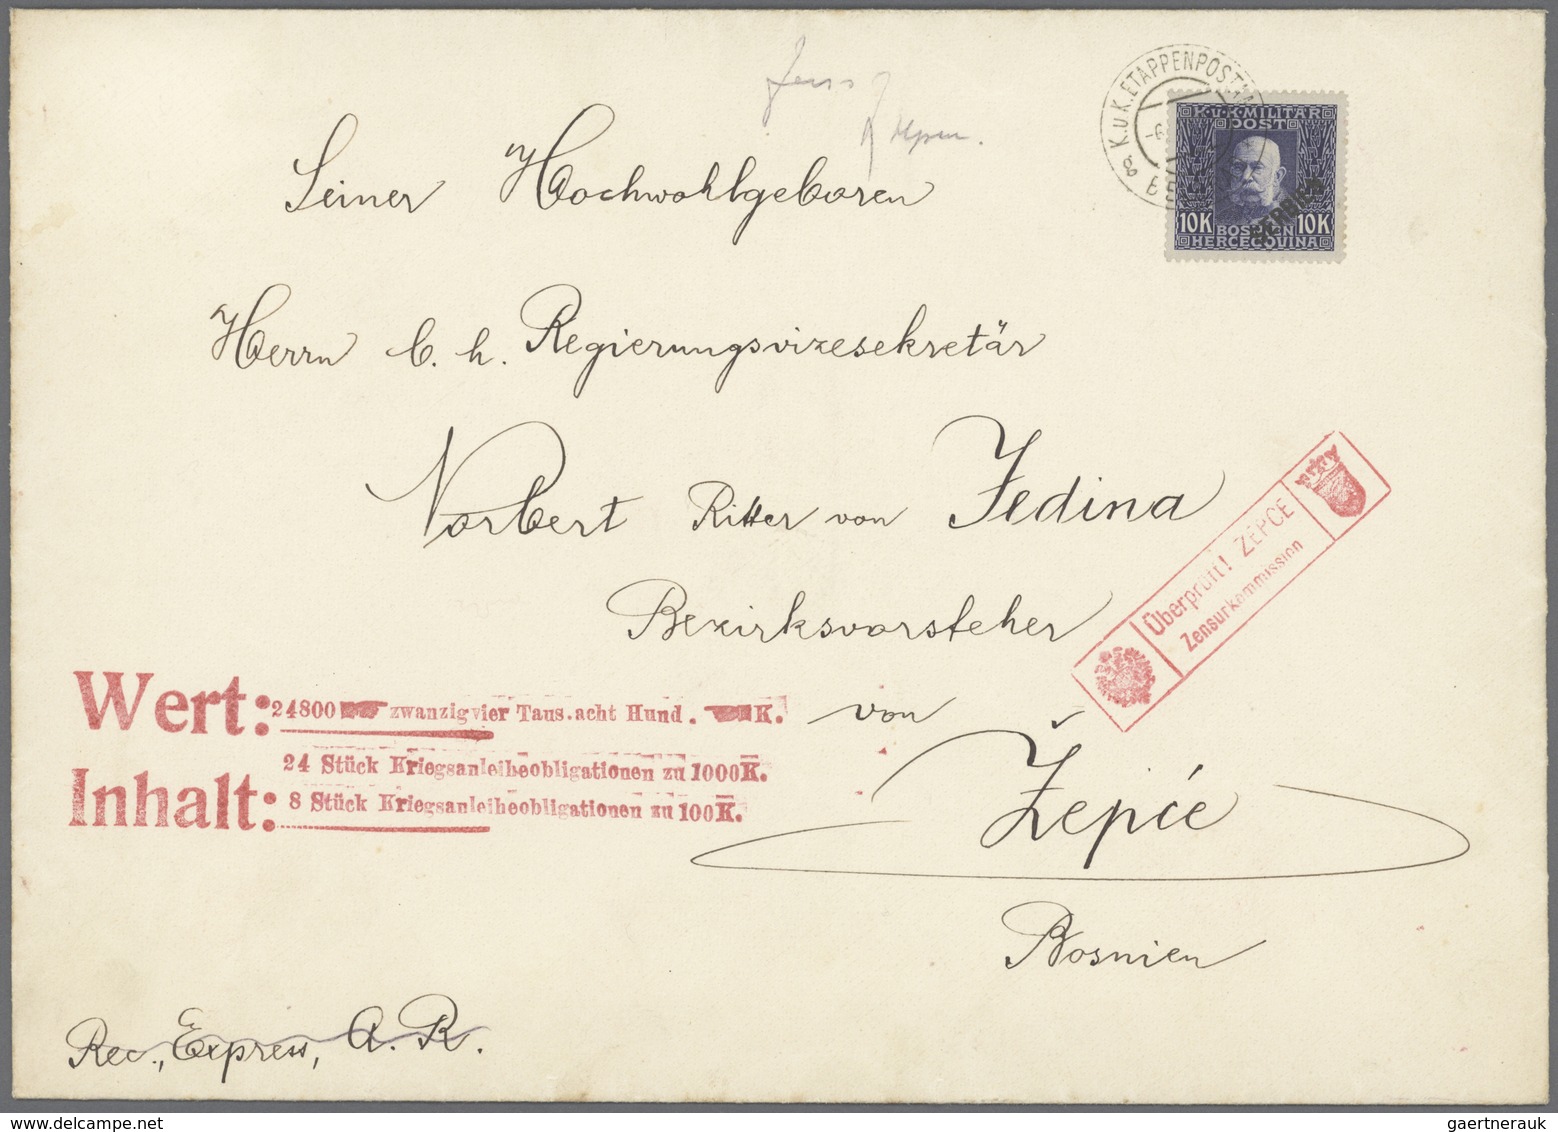 K.u.K. ETAPPENPOST
K.u.K. MILITÄR
POST
10K BOSNIEN 10K
HERCEGOVINA
SERBIEN
Seiner Hochwohlgeboren
Herrn b. h. Regierungsvizesekretär
Norbert Ritter von Jedina
Bezirksvorsteher
Überprüft! ZEPCE
Zensurkommission
Wert: 24800 zwanzigvier Taus.acht Hund. K.
von
Inhalt: 24 Stück Kriegsanleiheobligationen zu 1000K.
8 Stück Kriegsanleiheobligationen zu 100K.
Žepče
Bosnien
Rec., Express, A. R.
gaertnerauk